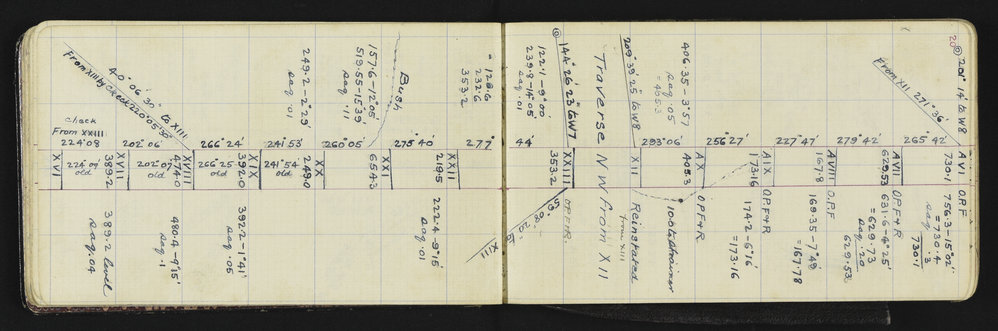 From XIII by check 220°05'30"
40° 06' 30" to XIII
check
From XXIII
224°08
202°06'
266°24'
241°53
260°05'
275°40'
277°
XVI
224°08'
old
389.2
XVII
202°07
old
474.0
XVIII
266°25
old
392.0
XIX
241°54
old
249.0
XX
654.3
XXI
219.5
XXII
249.2–2°29'
sag .01
157.6–12°05'
519.55–15°39'
sag .11
Bush
128.6
232.6
353.2
389.2 level
sag .04
480.4–9°15'
sag .1
392.2–1°41'
sag .05
222.4–9°15'
sag .01
XIII
144°26'23" to W7
122.1–9°00'
239.8–14°05'
sag .01
44'
353.2
XXIII
O.P.F.R.
59°08'20" to
Traverse NW from XII
209°39'25" to W8
XII
Reinstated
from XIII
406.35–3°57'
sag .05
=405.3
293°06'
405.3
AX
O.P.F+R
100 lk strainer
256°27'
173.16
AIX
O.P.F+R
174.2–6°16'
=173.16
227°47'
167.8
AVIII
O.P.F.
169.35–7°49'
=167.78
279°42'
629.53
AVII
O.P.F+R
631.6–4°25'
=629.73
sag .20
629.53
265°42'
730.1
AVI
O.P.F
756.3–15°02'
=730.4
sag .3
730.1
From XII 271°36'
201°14' to W8
20